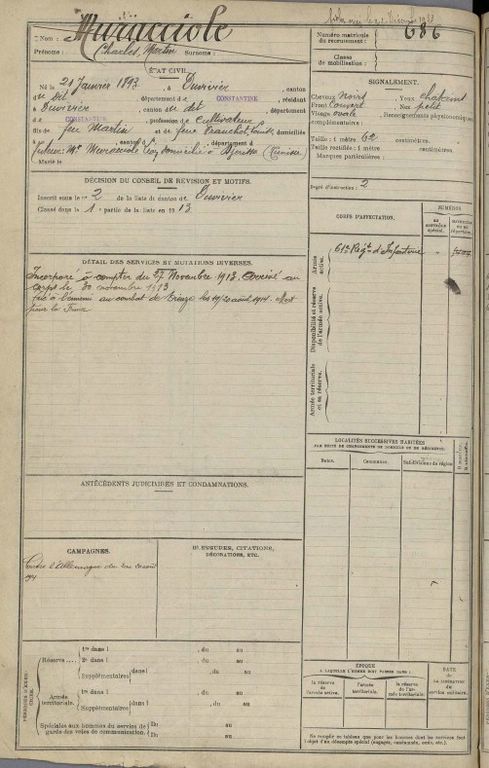 Nom : Muracciole
Prénoms : Charles, Martin Surnoms :
Numéro matricule
du recrutement : 686
Classe
de mobilisation :
ÉTAT CIVIL.
Né le 21 Janvier 1893, à Duvivier, canton
du Dit, département de CONSTANTINE, résidant
à Duvivier, canton du dit, département
de CONSTANTINE, profession de Cultivateur
fils de feu Martin et de feue Franchot, Louise, domiciliés
à canton d département d
domicilié à (Tunisie)
Marié le
SIGNALEMENT.
Cheveux Noirs Yeux
Front Couvert Nez petit
Visage ovale Renseignements physionomiques
complémentaires :
Taille : 1 mètre 62 centimètres.
Taille rectifiée : 1 mètre centimètres.
Marques particulières :
Degré d'instruction : 2
DÉCISION DU CONSEIL DE REVISION ET MOTIFS.
Inscrit sous le n° 2 de la liste du canton de Duvivier
Classé dans la 1e partie de la liste en 1913
DÉTAIL DES SERVICES ET MUTATIONS DIVERSES.
Incorporé à compter du 27 Novembre 1913. Arrivé au
corps le 30 novembre 1913
Tué à l'ennemi au combat de les 19/20 août 1914. Mort
pour la France
CORPS D'AFFECTATION.
NUMÉROS
au
contrôle
spécial.
Armée
active.
61e Régt d'Infanterie
Disponibilité et réserve
de l'armée active.
Armée territoriale
et sa réserve.
LOCALITÉS SUCCESSIVES HABITÉES
PAR SUITE DE CHANGEMENTS DE DOMICILE OU DE RÉSIDENCE.
Dates. Communes. Subdivisions de région
ANTÉCÉDENTS JUDICIAIRES ET CONDAMNATIONS.
CAMPAGNES.
Contre l'Allemagne du 2 au 20 août
1914
BLESSURES, CITATIONS,
DÉCORATIONS, ETC.
PÉRIODES D'EXERCICES.
Réserve
1re dans l , du au
2e dans l , du au
Supplémentaires dans l , du au
Armée
territoriale.
1re dans l , du au
Supplémentaires dans l , du au
Spéciales aux hommes du service de
garde des voies de communication.
Du au
Du au
ÉPOQUE
À LAQUELLE L'HOMME DOIT PASSER DANS :
la réserve
de l'armée active.
l'armée
territoriale.
la réserve
de l'armée
territoriale.
DATE
de
la libération
du
service militaire.